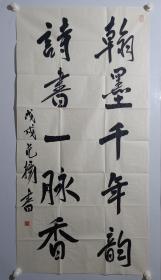 翰墨千年韵
詩書一脉香
戊戌
書